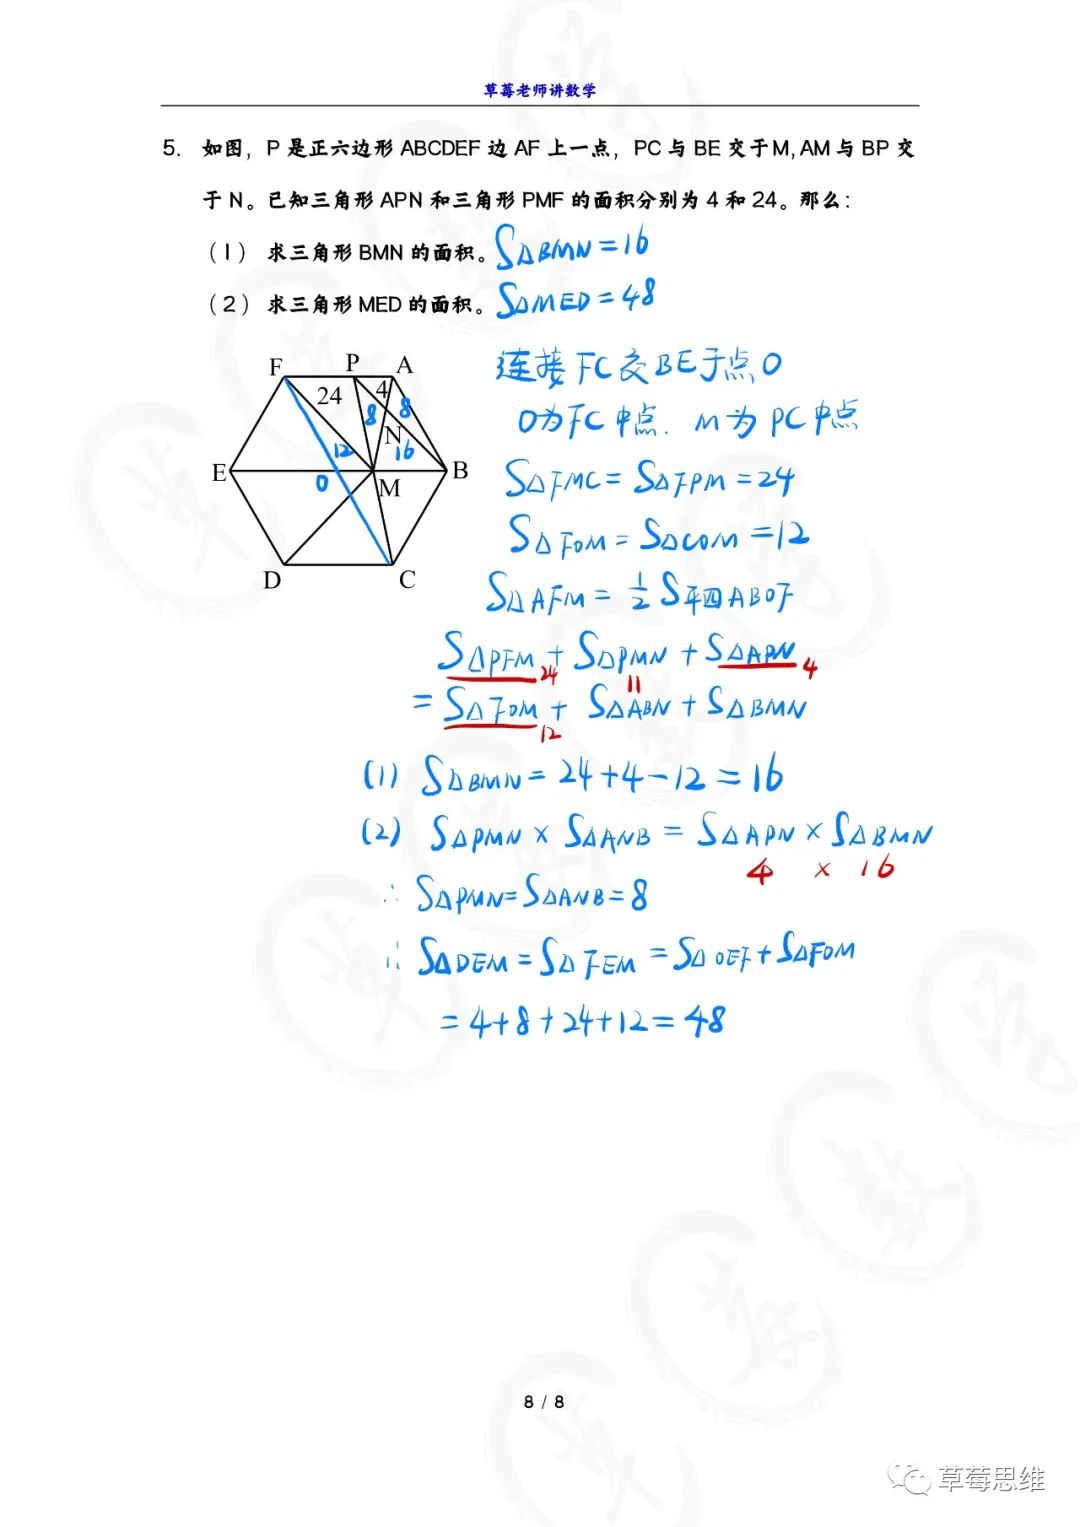 草莓老师讲数学
5. 如图，P 是正六边形 ABCDEF 边 AF 上一点，PC 与 BE 交于M, AM 与 BP 交
于 N。已知三角形 APN 和三角形 PMF 的面积分别为 4 和 24。那么：
(1) 求三角形 BMN 的面积。S△BMN=16
(2) 求三角形 MED 的面积。S△MED=48
连接FC交BE于点O
F P A
24 4
8 8
O为FC中点. M为PC中点
N
12 16
E B
O M
S△FMC=S△FPM=24
S△FOM=S△COM=12
D C
S△AFM=1/2S平四ABOF
S△PFM+S△PMN+S△APN
24 11 4
=S△FOM+S△ABN+S△BMN
12
(1) S△BMN=24+4-12=16
(2) S△PMN×S△ANB=S△APN×S△BMN
4 × 16
∴S△PMN=S△ANB=8
∴S△DEM=S△FEM=S△OEF+S△FOM
=4+8+24+12=48
8 / 8
草莓思维